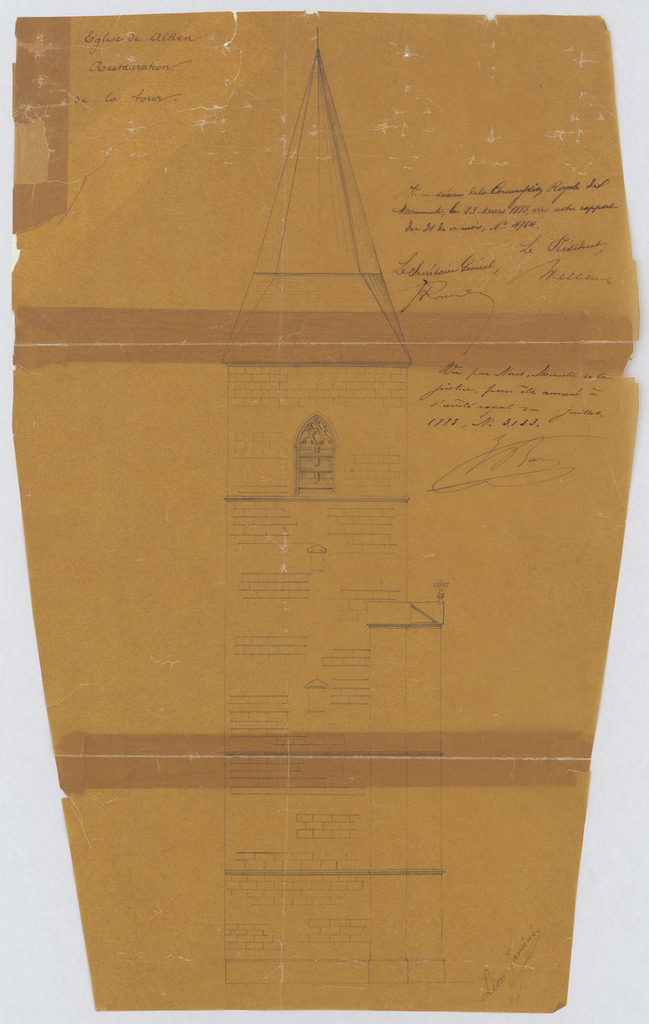 Eglise de Alken
Restauration
de la tour.
Vu en séance de la Commission Royale des
Monuments, le 23 Mars 1883, avec notre rapport
du 31 de ce mois, Nº 4764.
Le Président,
Wellens
Le Secrétaire Général,
Vu par Nous, Ministre de la
justice, pour être annexé à
l'arrêté royal du juillet
1883, Nº 3133.
J Bara
Léon Jaminé